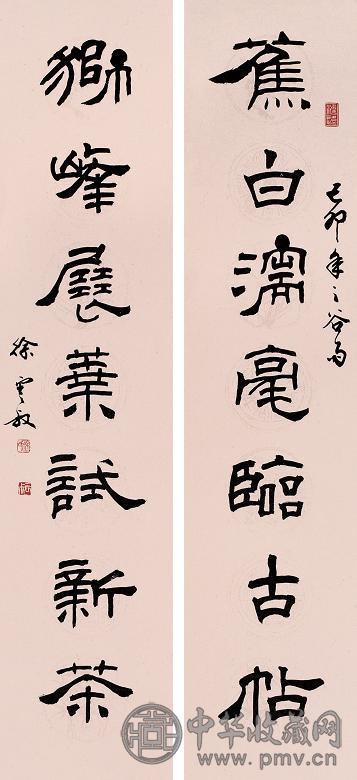 蕉白濡毫臨古帖
己卯年之谷雨
獅峰展葉試新茶
徐雲叔
中华收藏网
www.pmv.cn